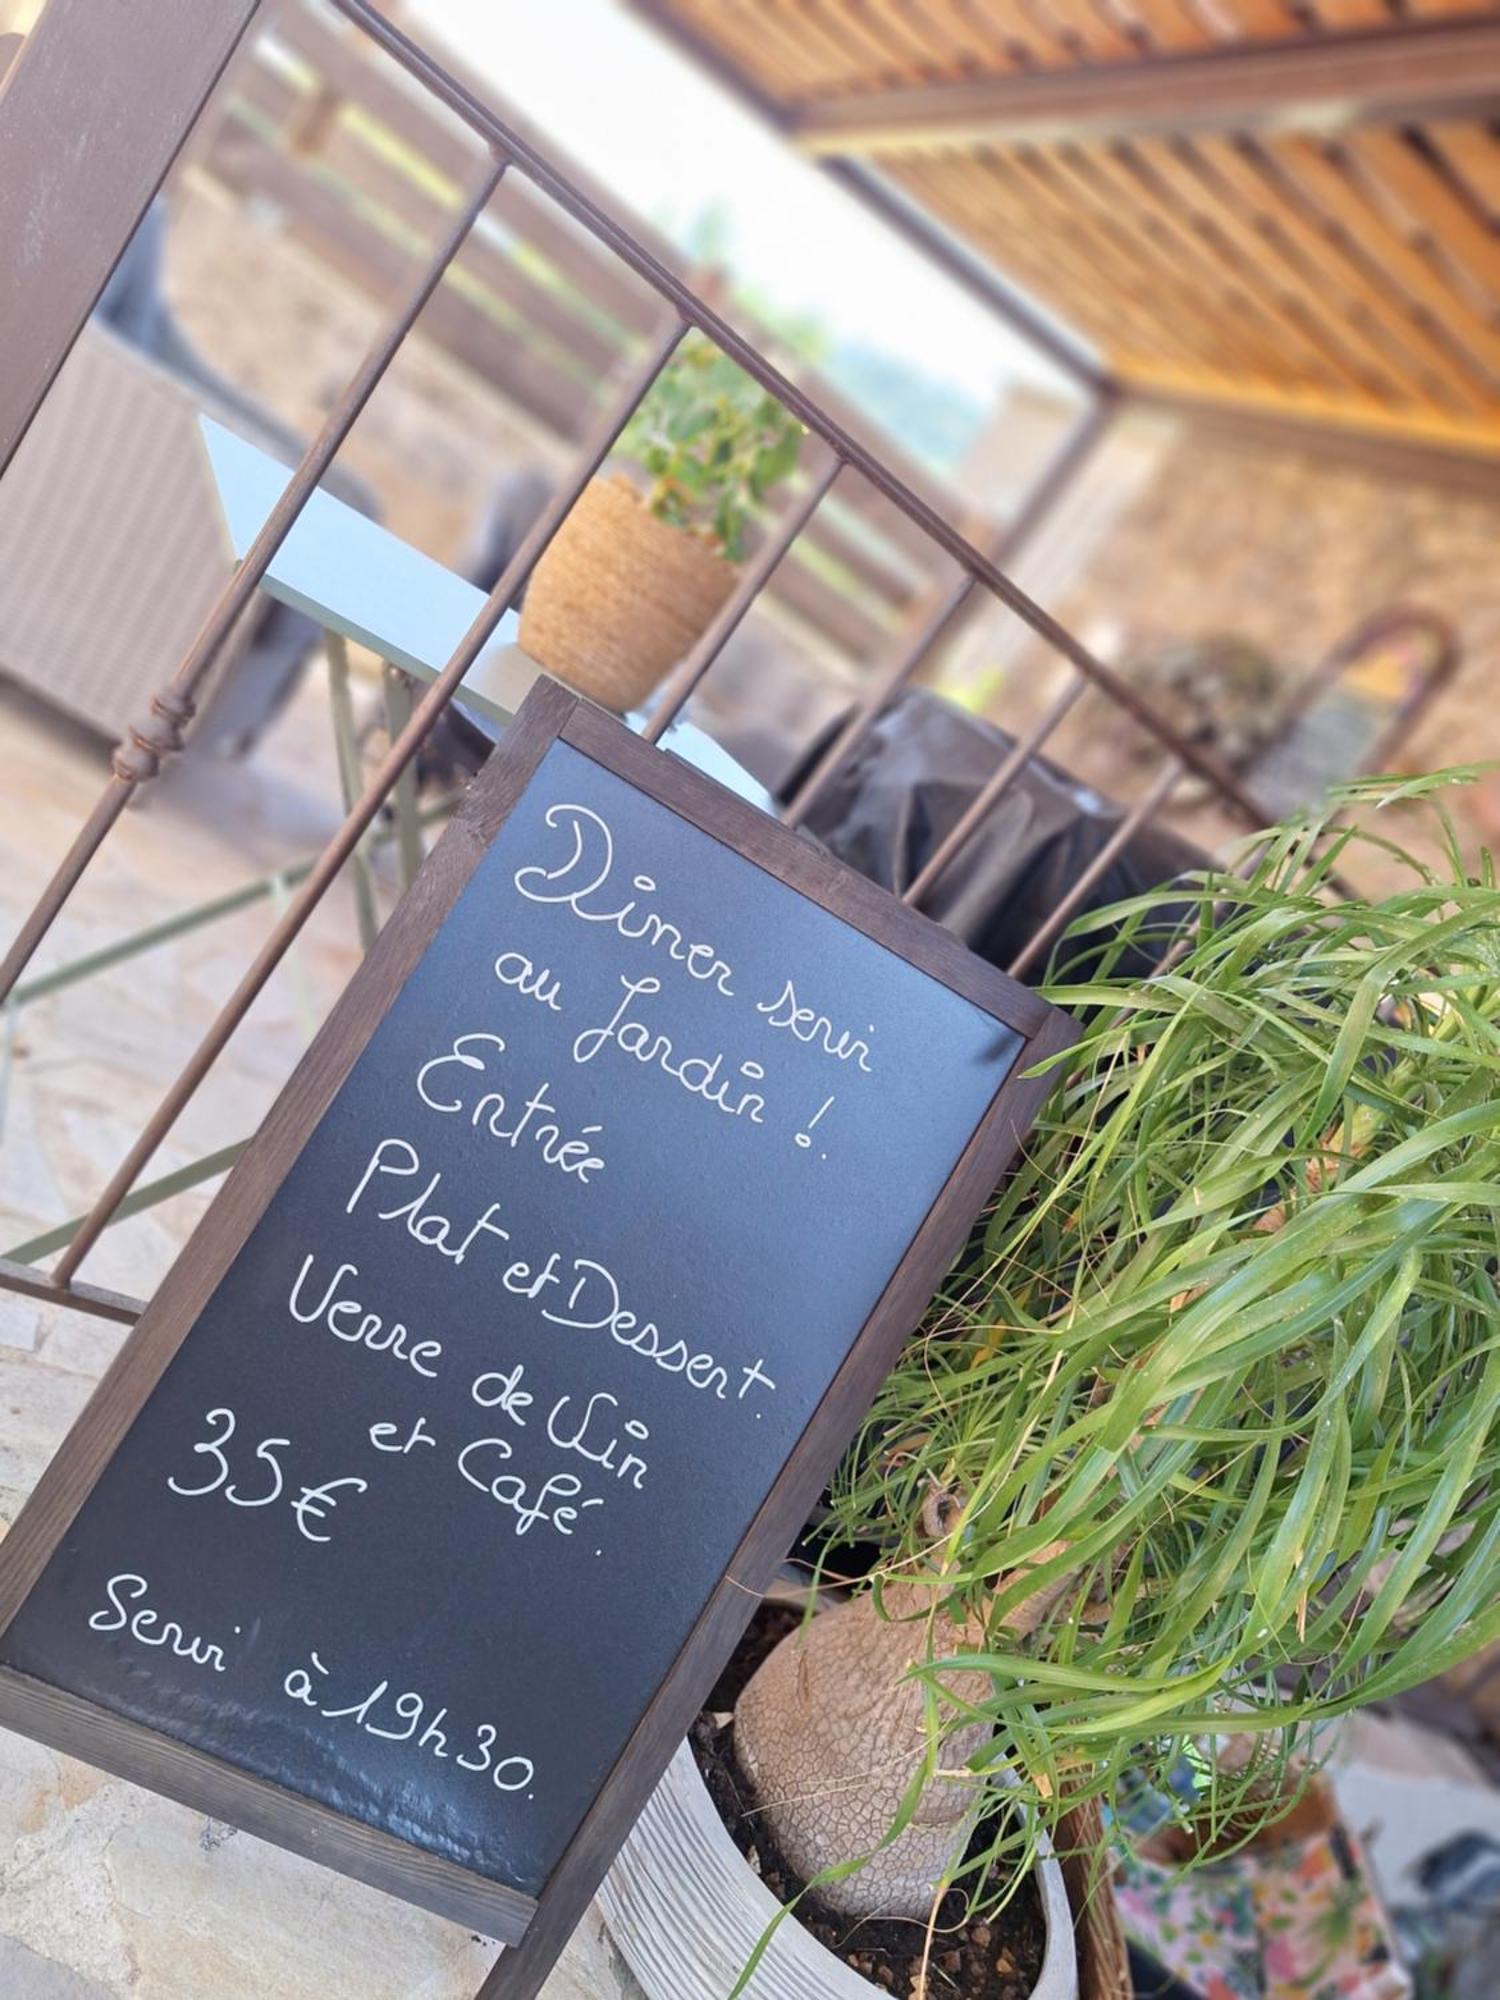 Diner servi
au Jardin !
Entrée
Plat et Dessert.
Verre de Vin
et Café.
35€
Servi à 19h30.